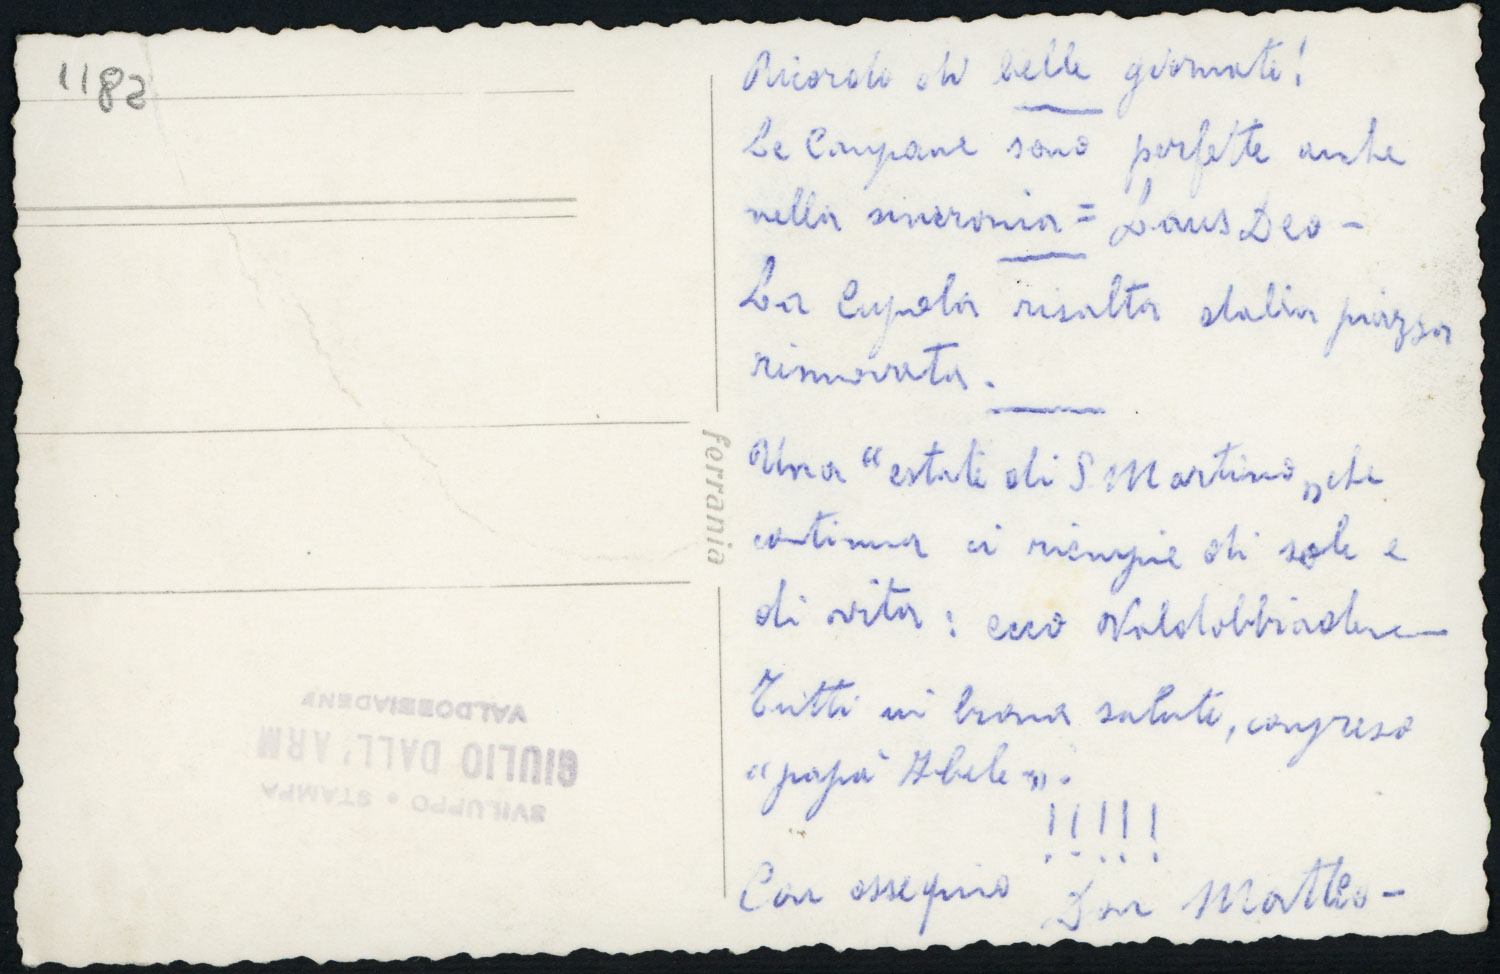 1182
Ricordo di belle giornate!
Le Campane sono perfette anche
nella sincronia = Laus Deo -
La Cupola risalta dalla piazza
rinnovata.
Una “estate di S. Martino„ che
continua ci riempie di sole e
di vita: ecco Valdobbiadene
Tutti in buona salute, compreso
“papà Abele„.
!!!!!
Con ossequio Don Matteo -
ferrania
SVILUPPO • STAMPA
GIULIO DALL'ARMI
VALDOBBIADENE